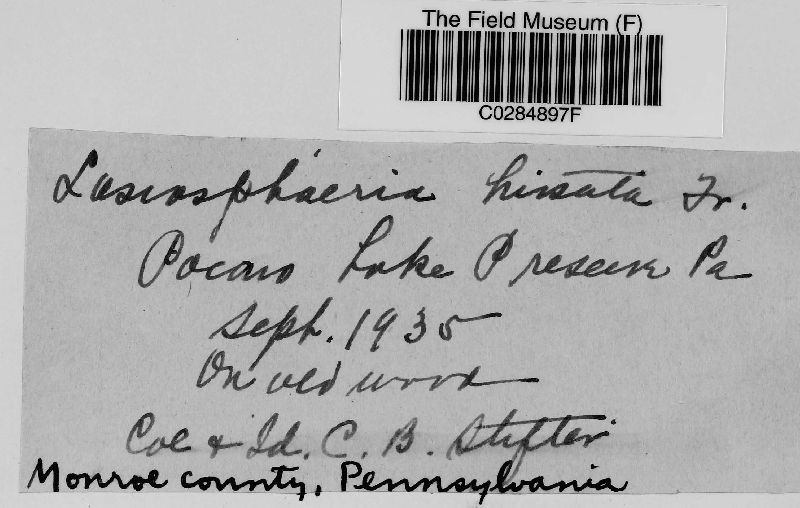 The Field Museum (F)
C0284897F
Lasiosphaeria hirsuta Fr.
Pocono Lake Preserve Pa
Sept. 1935
On old wood
Col & Id. C. B. Stifler
Monroe county, Pennsylvania